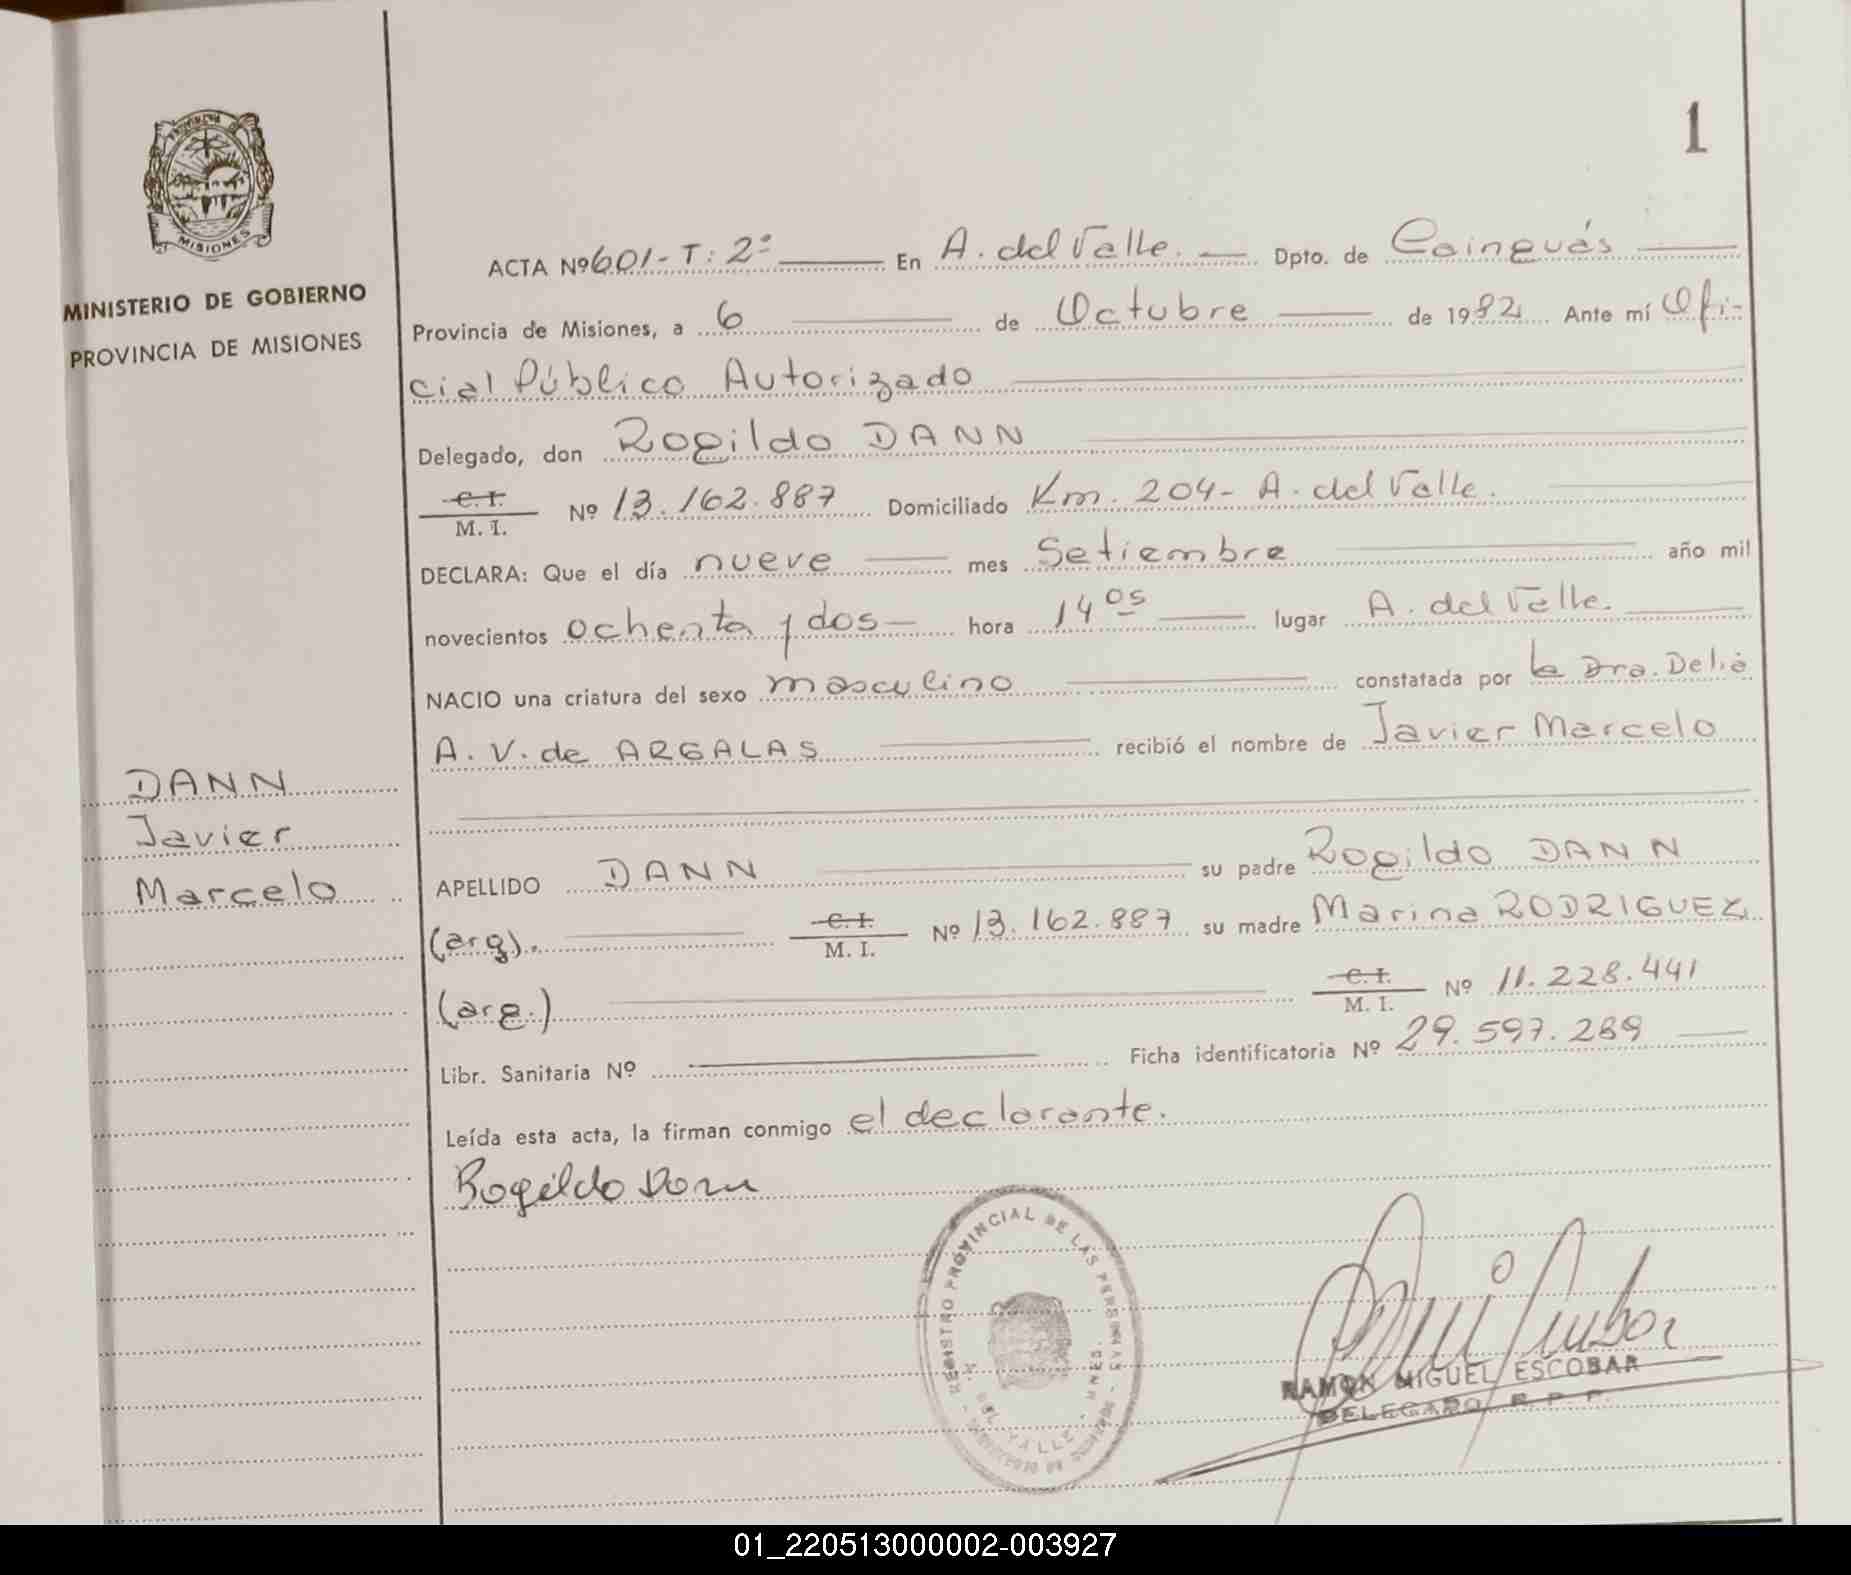 1
PROVINCIA
MISIONES
MINISTERIO DE GOBIERNO
PROVINCIA DE MISIONES
DANN
Javier
Marcelo
ACTA Nº 601-T: 2ª En A. del Valle. Dpto. de Cainguás
Provincia de Misiones, a 6 de Octubre de 1982 Ante mí Ofi-
cial Público Autorizado
Delegado, don Rogildo DANN
C. I.
M. I. Nº 13.162.887 Domiciliado Km. 204- A. del Valle.
DECLARA: Que el día nueve mes Setiembre año mil
novecientos ochenta y dos- hora 14 05 lugar A. del Valle.
NACIO una criatura del sexo masculino constatada por la Dra. Delia
A. V. de ARGALAS recibió el nombre de Javier Marcelo
APELLIDO DANN su padre Rogildo DANN
(arg). C. I.
M. I. Nº 13.162.887 su madre Marina RODRIGUEZ
(arg.) C. I.
M. I. Nº 11.228.441
Libr. Sanitaria Nº Ficha identificatoria Nº 29.597.289
Leída esta acta, la firman conmigo el declarante.
Rogildo Dann
REGISTRO PROVINCIAL DE LAS PERSONAS
A. DEL VALLE
RAMON MIGUEL ESCOBAR
DELEGADO R. P. P.
01_220513000002-003927